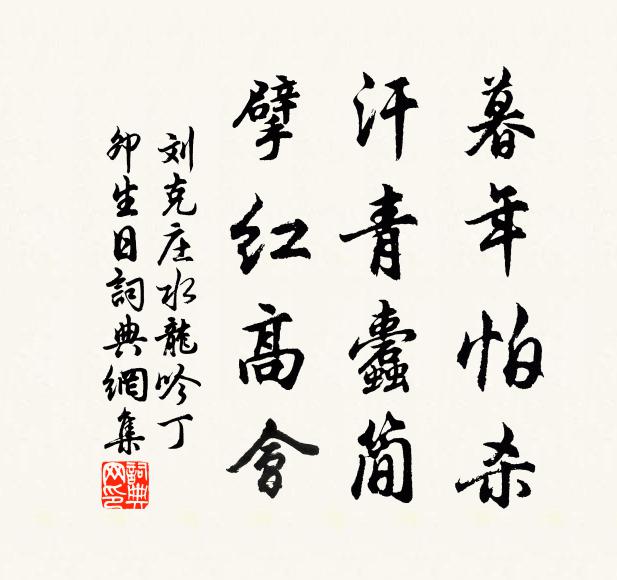 暮年怕杀
汗青蠹简
擘红高會
刘克庄水龍吟丁
卯生日詞典網集
詞典网印